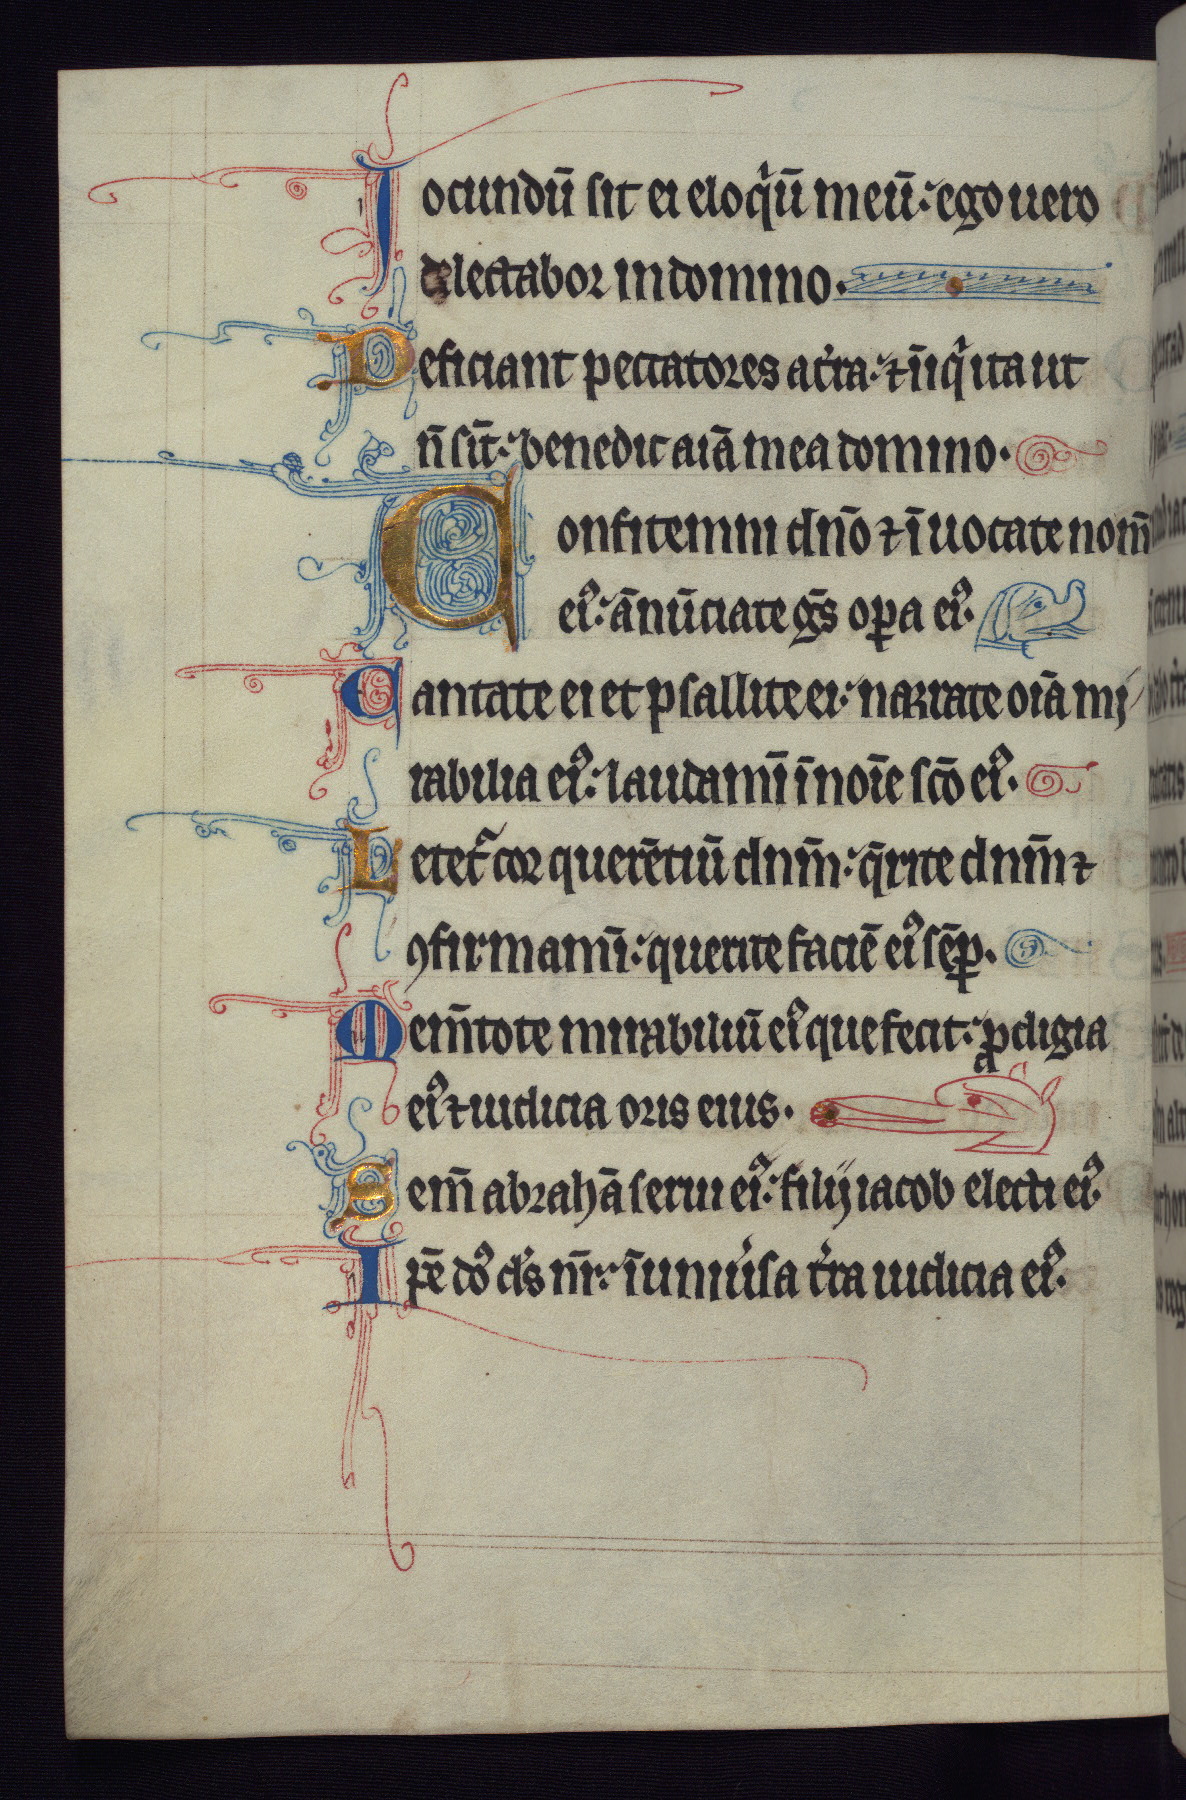 Iocundū sit ei eloq̓ū meū: ego uero
delectabor in domino.
Deficiant peccatores a t̓ra: ⁊ īiq̓ ita ut
ñ sīt: benedic aīa mea domino.
Confitemini dn̄o ⁊ īuocate nom̄
eiꝰ: ānūciate gn̄s opa eiꝰ.
Cantate ei et psallite ei: narrate oīa mi
rabilia eiꝰ: laudamī ī noīe sc̄o eiꝰ.
Letet᷑ cor querētiū dnm̄: q̄rite dnm̄ ⁊
ꝯfirmamī: querite faciē eiꝰ sēꝑ.
Mem̄tote mirabiliū eiꝰ que fecit: ꝓdigia
eiꝰ ⁊ iudicia oris eius.
Sem̄ abrahā serui eiꝰ: filij iacob electi eiꝰ.
Ipē doꝰ ds̄ nr̄: ī uniu̓sa t̓ra iudicia eiꝰ.